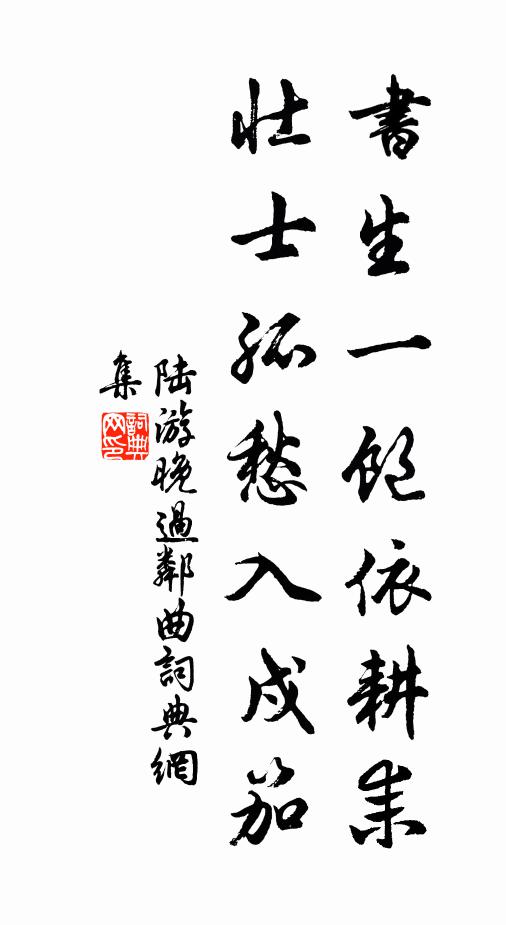 書生一飽依耕耒
壯士孤愁入戍笳
陸游晚過鄰曲詞典網
集
詞典
网印